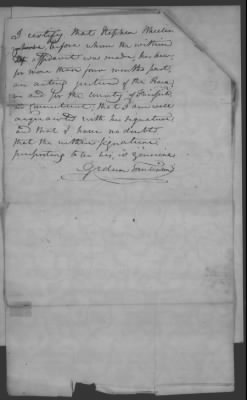 I certify that Stephen Wheeler
before whom the within
affidavit was made, has been
for more than four months past,
an acting justice of the Peace,
in and for the County of Fairfield
in Connecticut, that I am well
acquainted with his signature
and that I have no doubt
that the within signature
purporting to be his, is genuine
Gideon Tomlinson